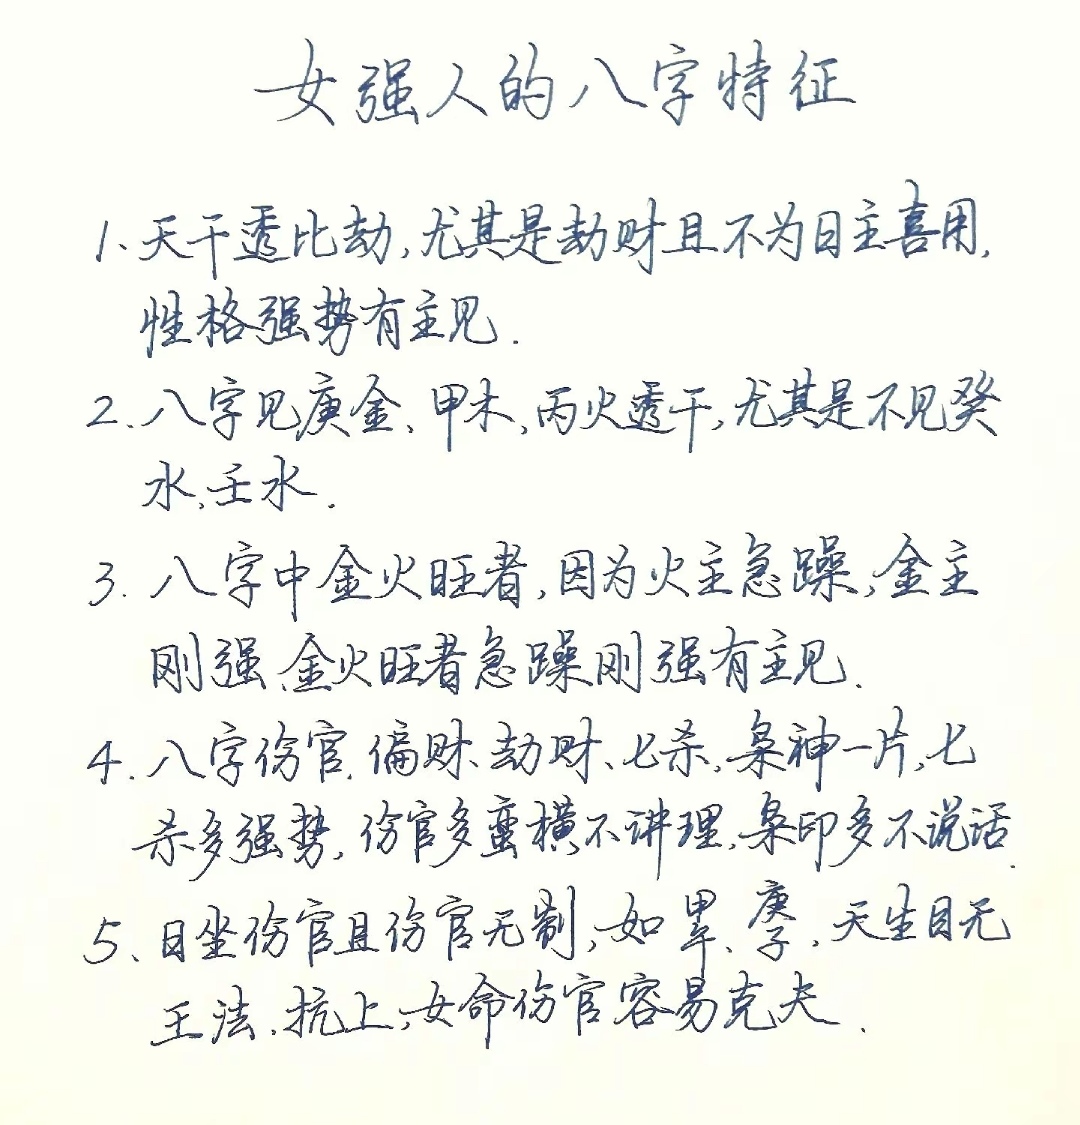 女强人的八字特征
1、天干透比劫,尤其是劫财且不为日主喜用,
性格强势有主见.
2、八字见庚金、甲木,丙火透干,尤其是不见癸
水、壬水.
3.八字中金火旺者,因为火主急躁,金主
刚强、金火旺者急躁刚强有主见.
4.八字伤官、偏财、劫财、七杀,枭神一片,七
杀多强势,伤官多蛮横不讲理,枭印多不说话.
5、日坐伤官且伤官无制,如甲午、庚子,天生目无
王法、抗上,女命伤官容易克夫.